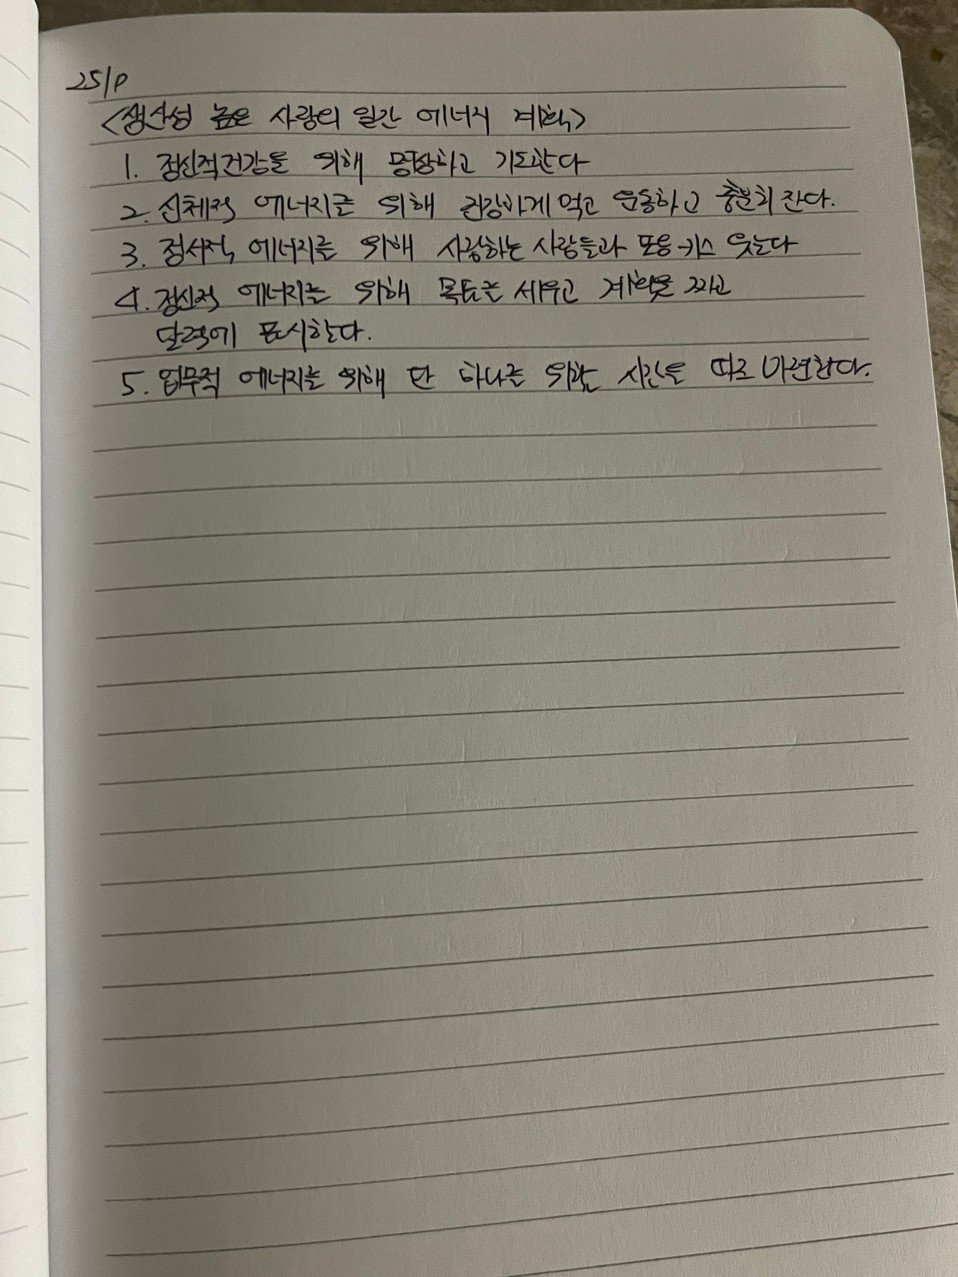 251p
<생산성 높은 사람의 일간 에너지 계획>
1. 정신적건강을 위해 명상하고 기도한다
2. 신체적 에너지를 위해 건강하게 먹고 운동하고 충분히 잔다.
3. 정서적 에너지를 위해 사랑하는 사람들과 포옹·키스 웃는다
4. 정신적 에너지를 위해 목표를 세우고 계획을 짜고
달력에 표시한다.
5. 업무적 에너지를 위해 단 하나를 위한 시간을 따로 마련한다.